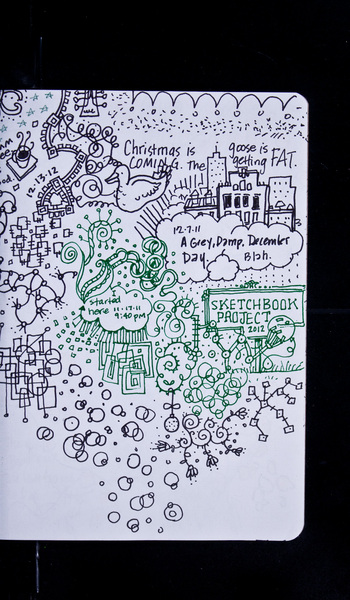 Christmas is
COMING. The
goose is
getting FAT.
12.13.12
12.7.11
A Grey, Damp, December
Day. Blah.
started
here 11-17-11
9:40 pm
SKETCHBOOK
PROJECT
2012